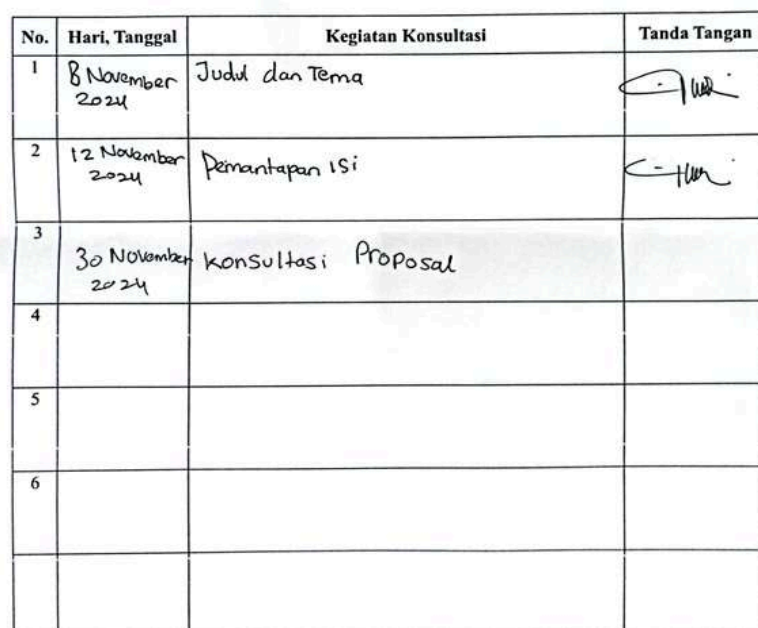 No. Hari, Tanggal Kegiatan Konsultasi Tanda Tangan
1 8 November Judul dan Tema
2024
2 12 November Pemantapan isi
2024
3
30 November Konsultasi Proposal
2024
4
5
6